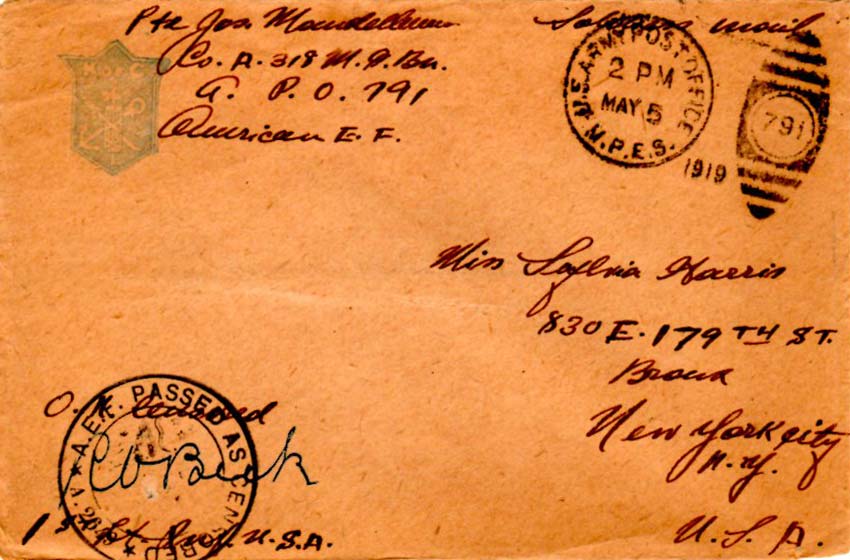 Pte Jos. Mandelbaum
Soldiers mail
Co. A. 318 M.G. Bn.
A. P.O. 791
American E. F.
U.S. ARMY POST OFFICE
2 PM
MAY 5
M.P.E.S.
1919
791
Miss Sylvia Harris
830 E. 179TH ST.
Bronx
New York city
N.Y.
U. S. A.
O.K. censored
A.E.F. PASSED AS CENSORED
1st Lt. U.S.A.